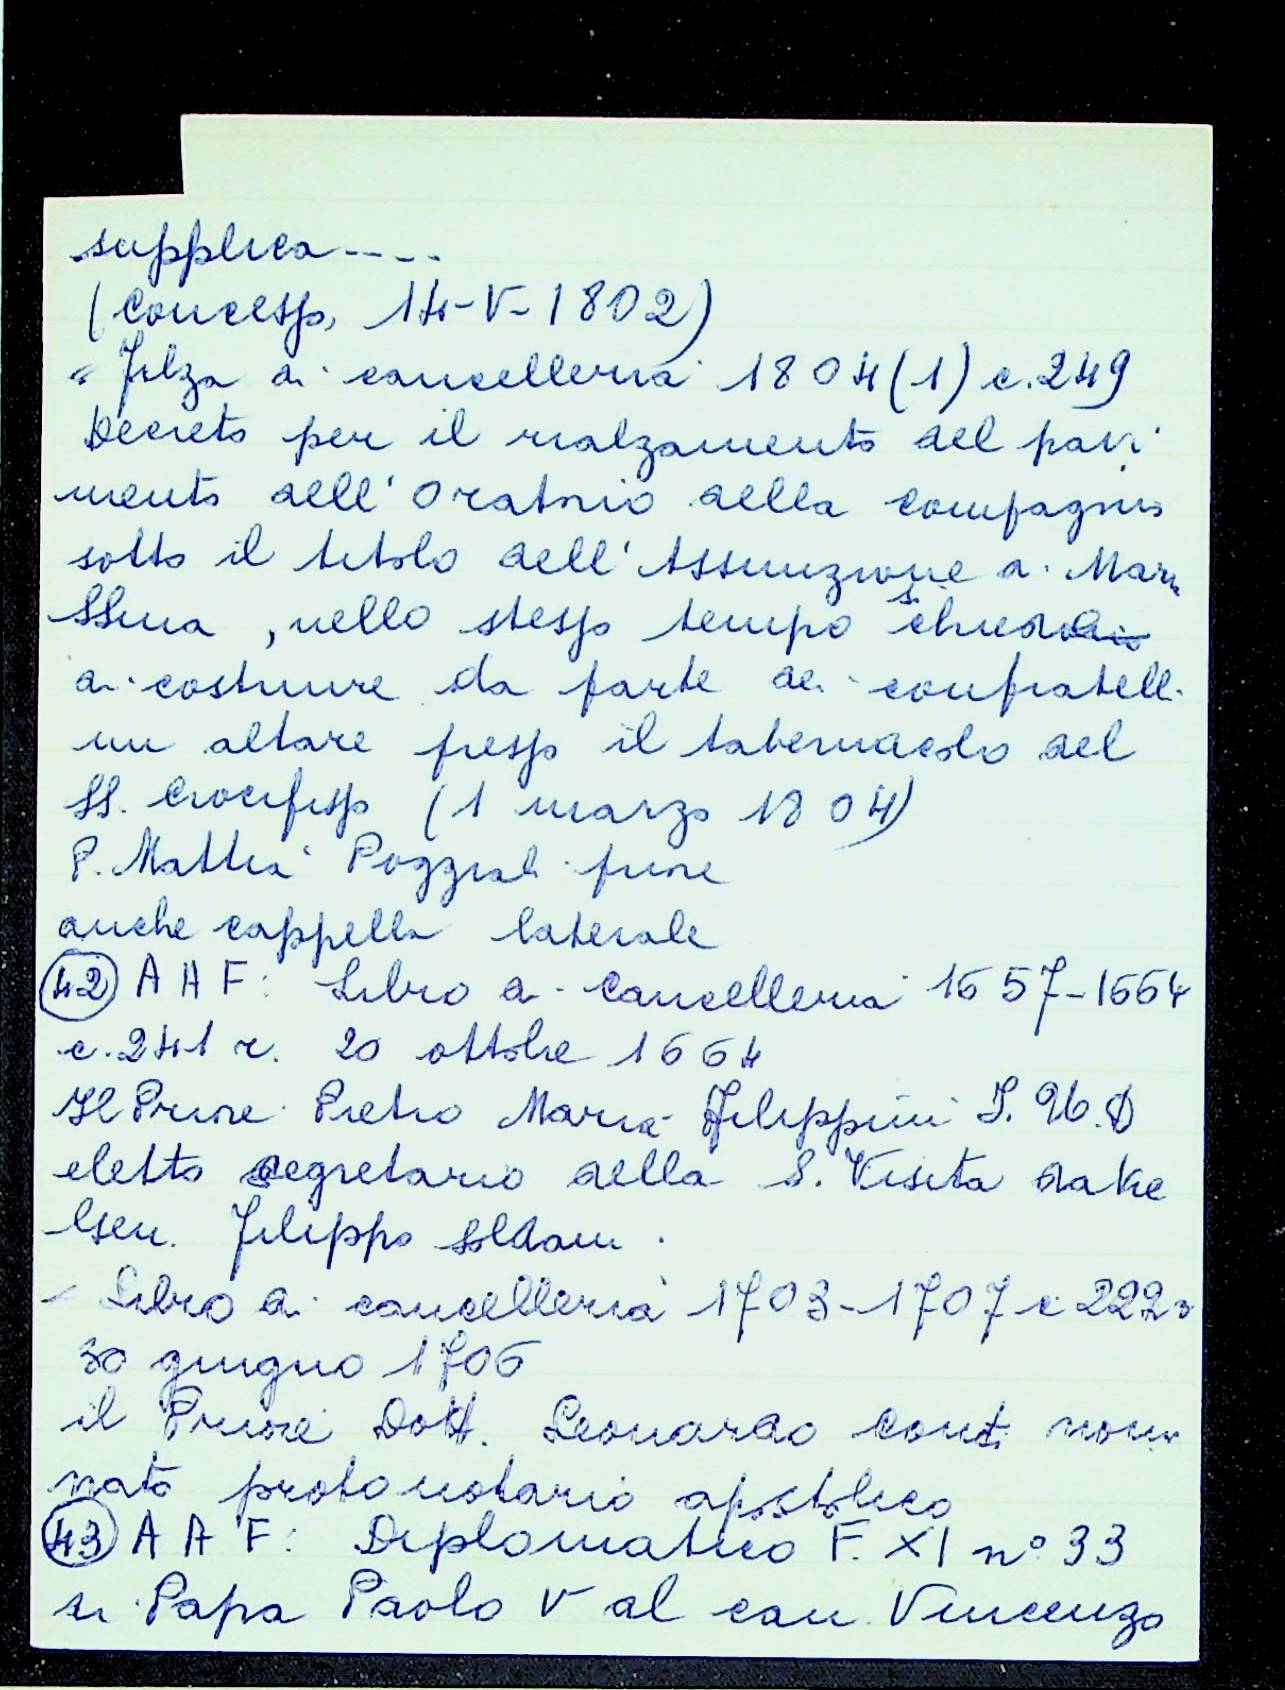 supplica----
(Concesso, 14-V-1802)
" Filza di cancelleria 1804(1) c.249
Decreto per il rialzamento del pavi
mento dell'Oratorio della compagnia
sotto il titolo dell'Assunzione di Maria
SSma, nello stesso tempo si
di costruire da parte dei confratelli
un altare presso il tabernacolo del
SS. Crocifisso (1 marzo 1804)
P. Mattia Poggiali priore
anche cappella laterale
(42) A A F: Libro di Cancelleria 1657-1664
c.241 r. 20 ottobre 1664
Il Priore Pietro Maria Filippini J.U.D
eletto segretario della S. Visita dal Vic
Gen. Filippo Soldani.
- Libro di cancelleria 1703-1707 c 222
30 giugno 1706
il Priore Dott. Leonardo Conti nomi
nato protonotario apostolico
(43) A A F: Diplomatico F. XI n° 33
Papa Paolo V al can. Vincenzo